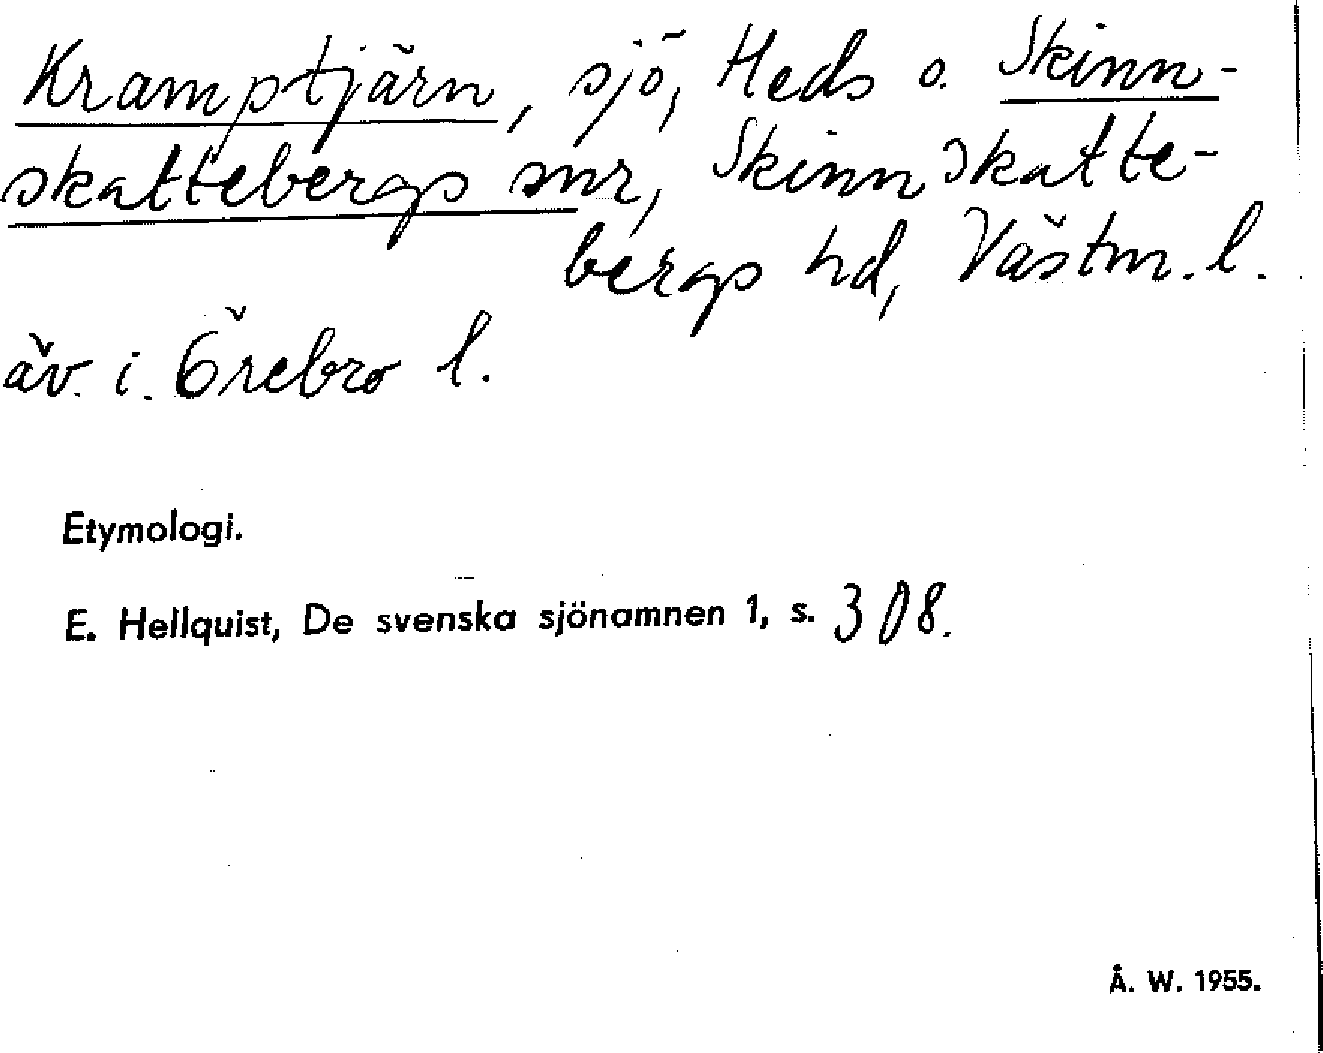 Kramptjärn, sjö, Heds o. Skinn-
skattebergs snr, Skinnskatte-
bergs hd, Västm. l.
äv. i Örebro l.
Etymologi.
E. Hellquist, De svenska sjönamnen 1, s. 308.
Å. W. 1955.